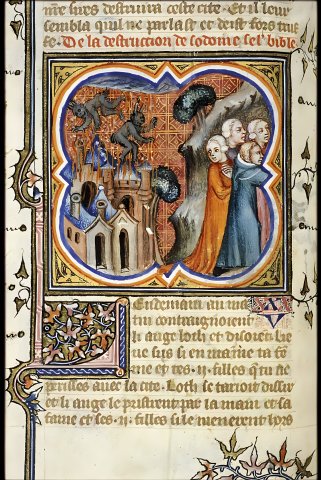 me sires destruira ceste cite. Et il leur
sembla quil ne parlast ce deist fors truf
fe. De la destruction de sodome sel'. bible
Lendemain au ma
tin contraignoient
li ange loth et disoient lie
ue sus si en maine ta fe
me et tes .ij. filles q̃ tu ne
perisses auec la cite. Loth se tarioit dissir
et li ange le pristrent par la main et sa
fame et ses .ij. filles si le menerent hors